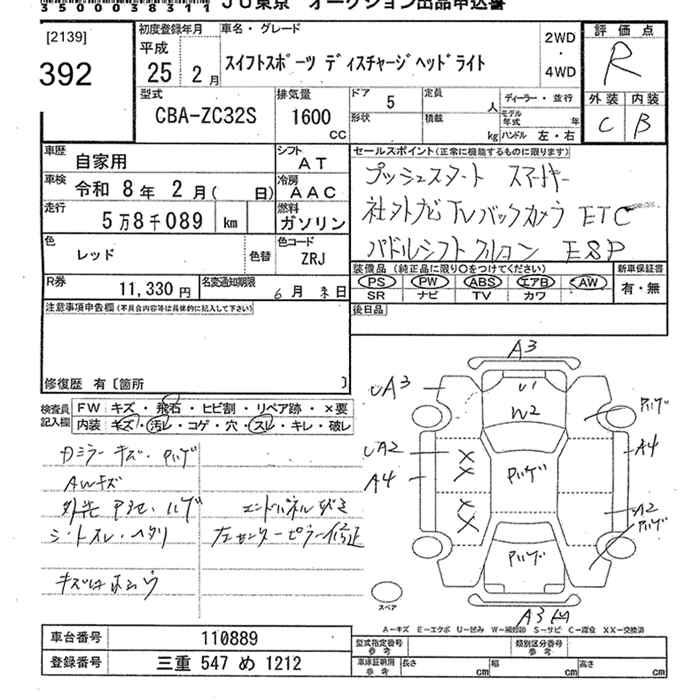 350038311 JU東京 オークション出品申込書
[2139]
392
初度登録年月
平成
25 2月
車名・グレード
スイフトスポーツ ディスチャージヘッドライト
2WD
・
4WD
評価点
R
外装 内装
C B
型式
CBA-ZC32S
排気量
1600
CC
ドア 5
形状
定員 人
積載 kg
ディーラー・並行
モデル年式 年
ハンドル 左・右
車歴 自家用
シフト AT
車検 令和 8年 2月( 日)
冷房 AAC
走行 5万8千089 km
燃料 ガソリン
色 レッド
色替
色コード ZRJ
R券 11,330円
名変通知期限 6月末日
セールスポイント(正常に機能するものに限ります)
プッシュスタート スマートキー
社外ナビ TV バックカメラ ETC
パドルシフト クルコン ESP
装備品(純正品に限り○をつけてください)
PS PW ABS エアB AW
SR ナビ TV カワ
新車保証書
有・無
後日品
注意事項申告欄(不具合内容等は具体的に記入して下さい)
修復歴 有〔箇所 〕
検査員記入欄
FW キズ・飛石・ヒビ割・リペア跡・×要
内装 キズ・汚レ・コゲ・穴・スレ・キレ・破レ
カミラーキズ・ハゲ
AWキズ
シートスレ・ヘタリ
エンドパネル
左センターピラー修正
A3
UA3
U1
W2
UA2
A4
A4
A2
A3
スペア
A-キズ E-エクボ U-凹み W-補修跡 S-サビ C-腐食 XX-交換済
車台番号 110889
登録番号 三重 547 め 1212
型式指定番号 参考
類別区分番号 参考
車庫証明用 参考
長さ cm
幅 cm
高さ cm